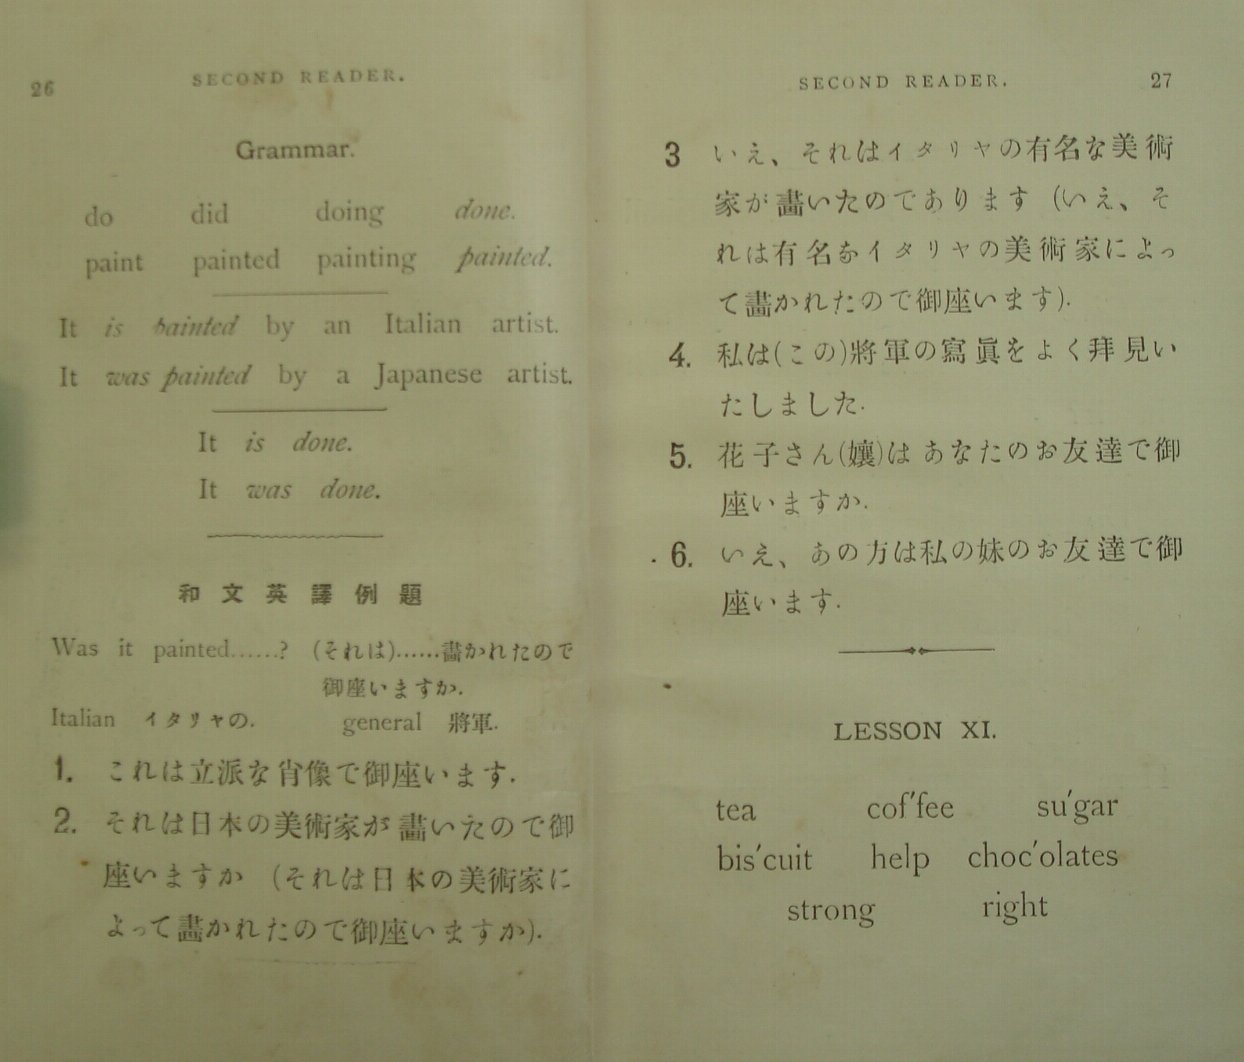 26
SECOND READER.
Grammar.
do did doing done.
paint painted painting painted.
It is painted by an Italian artist.
It was painted by a Japanese artist.
It is done.
It was done.
和文英譯例題
Was it painted......? (それは)......畵かれたので
御座いますか.
Italian イタリヤの. general 將軍.
1. これは立派な肖像で御座います.
2. それは日本の美術家が畵いたので御
座いますか (それは日本の美術家に
よって畵かれたので御座いますか).
SECOND READER.
27
3 いえ、それはイタリヤの有名な美術
家が畵いたのであります (いえ、そ
れは有名なイタリヤの美術家によっ
て畵かれたので御座います).
4. 私は(この)將軍の寫眞をよく拜見い
たしました.
5. 花子さん(孃)はあなたのお友達で御
座いますか.
6. いえ、あの方は私の妹のお友達で御
座います.
LESSON XI.
tea cof′fee su′gar
bis′cuit help choc′olates
strong right